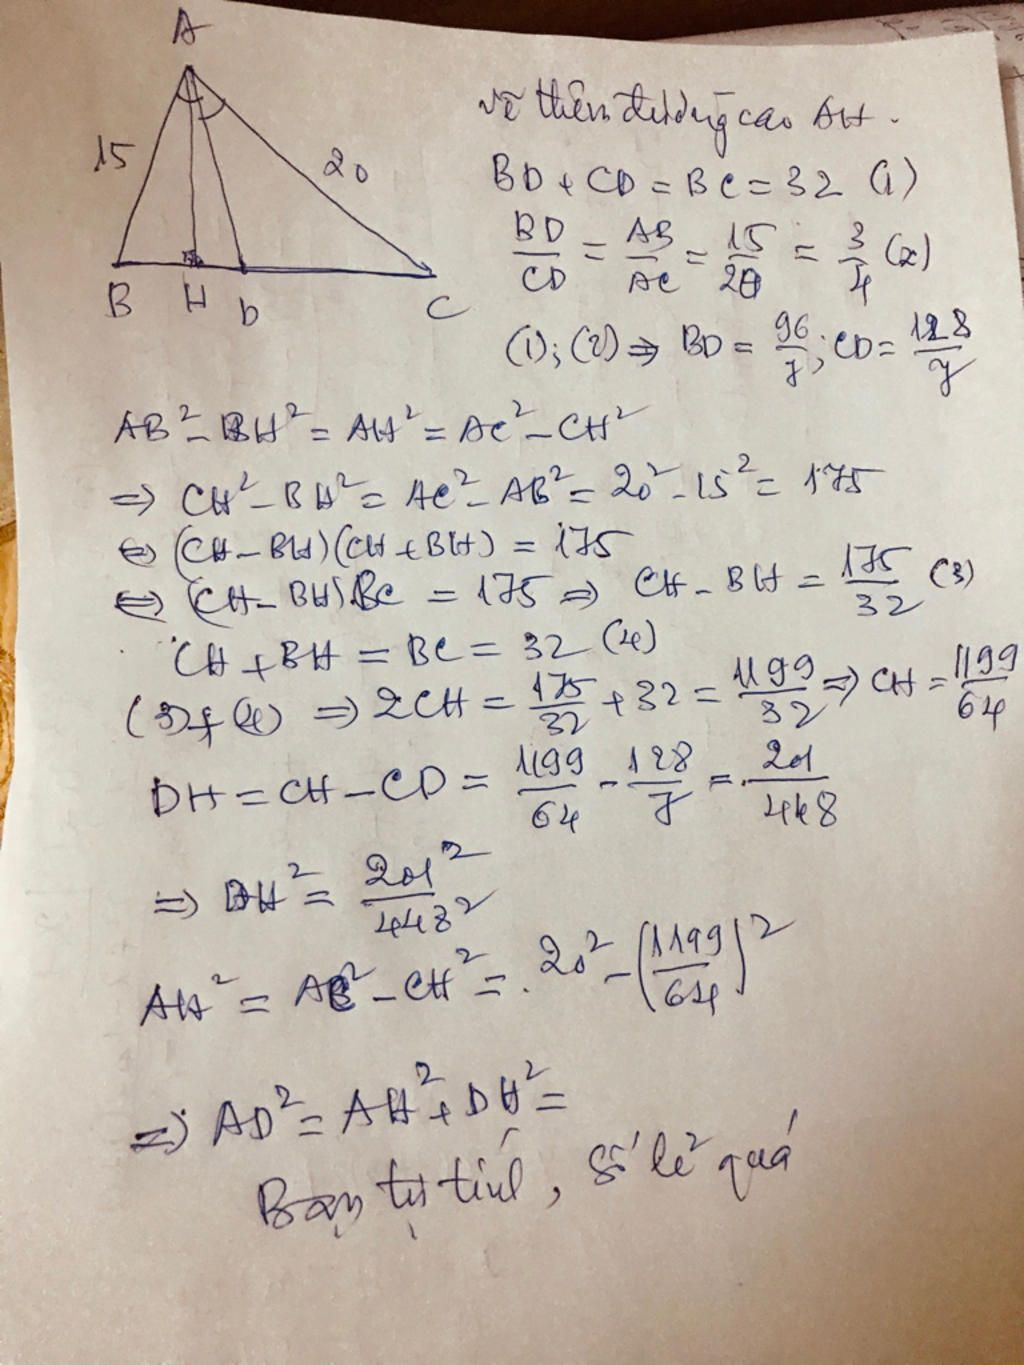 A
15
20
B H D C
vẽ thêm đường cao AH.
BD + CD = BC = 32 (1)
BD/CD = AB/AC = 15/20 = 3/4 (2)
(1); (2) ⇒ BD = 96/7; CD = 128/7
AB² - BH² = AH² = AC² - CH²
⇒ CH² - BH² = AC² - AB² = 20² - 15² = 175
⇔ (CH - BH)(CH + BH) = 175
⇔ (CH - BH).BC = 175 ⇒ CH - BH = 175/32 (3)
CH + BH = BC = 32 (4)
(3); (4) ⇒ 2CH = 175/32 + 32 = 1199/32 ⇒ CH = 1199/64
DH = CH - CD = 1199/64 - 128/7 = 201/448
⇒ DH² = 201²/448²
AH² = AC² - CH² = 20² - (1199/64)²
⇒ AD² = AH² + DH² =
Bạn tự tính, số lẻ quá